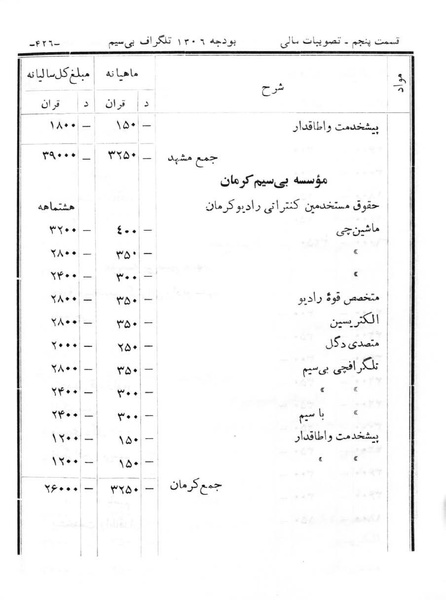 قسمت پنجم - تصویبات مالی بودجه ۱۳۰۶ تلگراف بی‌سیم -۴۲۶-
مواد شرح ماهیانه مبلغ کل سالیانه
قران د قران د
پیشخدمت و اطاقدار ۱۵۰ - ۱۸۰۰ -
جمع مشهد ۳۲۵۰ - ۳۹۰۰۰ -
مؤسسه بی‌سیم کرمان
حقوق مستخدمین کنتراتی رادیو کرمان هشتماهه
ماشین‌چی ۴۰۰ - ۳۲۰۰ -
» ۳۵۰ - ۲۸۰۰ -
» ۳۰۰ - ۲۴۰۰ -
متخصص قوهٔ رادیو ۳۵۰ - ۲۸۰۰ -
الکتریسین ۳۵۰ - ۲۸۰۰ -
متصدی دگل ۲۵۰ - ۲۰۰۰ -
تلگرافچی بی‌سیم ۳۵۰ - ۲۸۰۰ -
» » ۳۰۰ - ۲۴۰۰ -
» با سیم ۳۰۰ - ۲۴۰۰ -
پیشخدمت و اطاقدار ۱۵۰ - ۱۲۰۰ -
» » ۱۵۰ - ۱۲۰۰ -
جمع کرمان ۳۲۵۰ - ۲۶۰۰۰ -